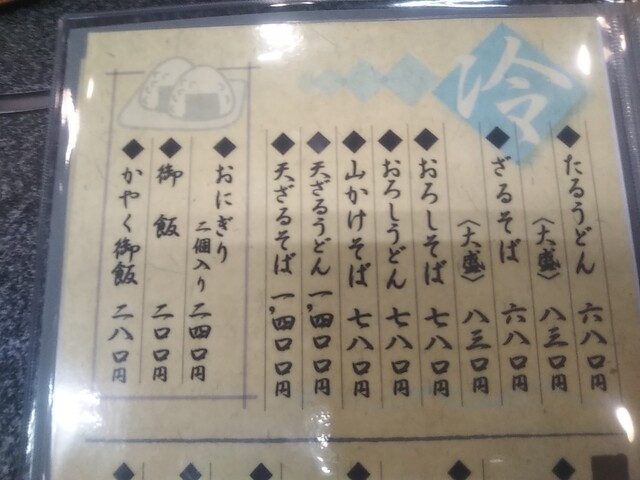 冷
たるうどん 六八〇円
〈大盛〉 八三〇円
ざるそば 六八〇円
〈大盛〉 八三〇円
おろしそば 七八〇円
おろしうどん 七八〇円
山かけそば 七八〇円
天ざるうどん 一,四〇〇円
天ざるそば 一,四〇〇円
おにぎり 二個入り 二四〇円
御飯 二〇〇円
かやく御飯 二八〇円